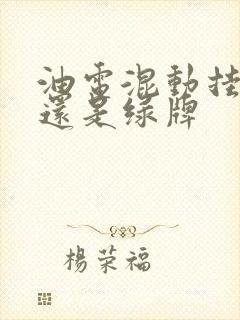 油電混動挂
還是綠牌
楊荣福